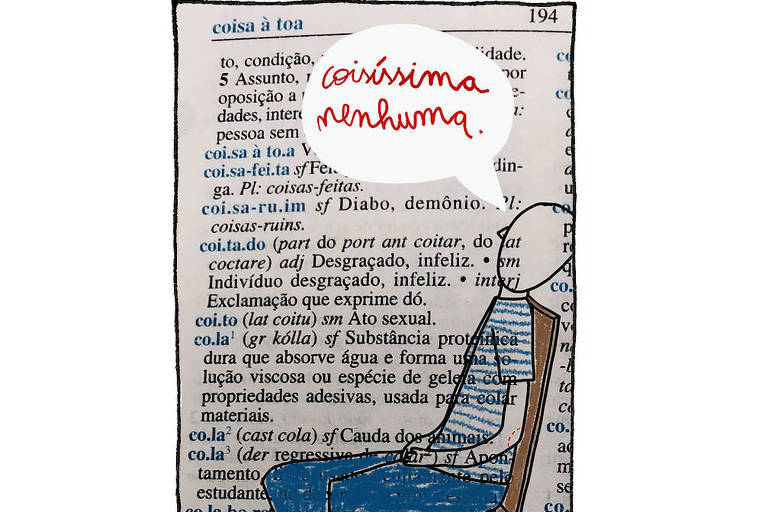 coisa à toa 194
to, condição, lidade.
5 Assunto, por
oposição a
dades, inter
pessoa sem
coisíssima
nenhuma.
coi.sa à to.a V
coi.sa-fei.ta sf Fei din-
ga. Pl: coisas-feitas.
coi.sa-ru.im sf Diabo, demônio. Pl:
coisas-ruins.
coi.ta.do (part do port ant coitar, do lat
coctare) adj Desgraçado, infeliz. • sm
Indivíduo desgraçado, infeliz. • interj
Exclamação que exprime dó.
coi.to (lat coitu) sm Ato sexual.
co.la¹ (gr kólla) sf Substância proteínica
dura que absorve água e forma uma so-
lução viscosa ou espécie de geleia com
propriedades adesivas, usada para colar
materiais.
co.la² (cast cola) sf Cauda dos animais.
co.la³ (der regressiva de colar²) sf Apon-
tamento pelo
estudante